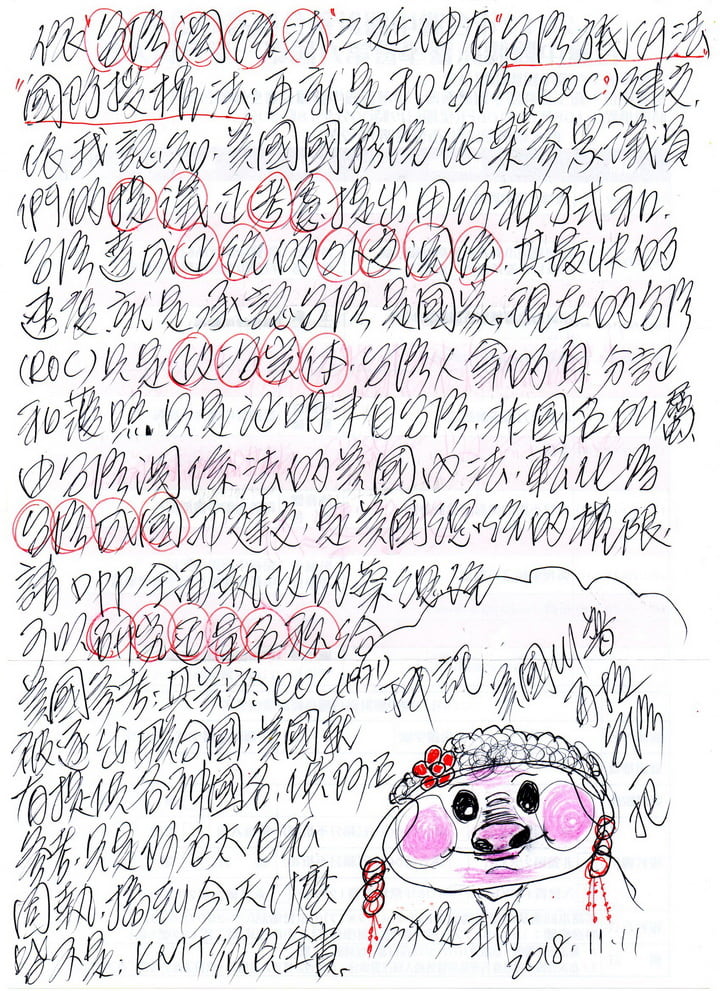 依"台灣關係法"之延伸有"台灣旅行法"
"國防授權法",再就是和台灣(ROC)建交,
依我認知,美國國務院依某參眾議員
們的提議正考慮提出用何种方式和
台灣達成正統的外交關係,其最快的
速度就是承認台灣是國家。現在的台灣
(ROC)只是政治實体,台灣人拿的身分証
和護照只是証明来自台灣,非國名所屬
由台灣關係法的美國內法,轉化為
台灣成國而建交,是美國總統的權限,
請DPP全面執政的蔡總統
可以 給
美國參考;其實於ROC(1971)
被逐出聯合國;美國就
有提供各种國名,供蔣石
參考,只是蔣石太自私
固執,搞到今天什麼
皆不是;KMT須負全責。
我説 美國
台灣
今天是主角
2018.11.11